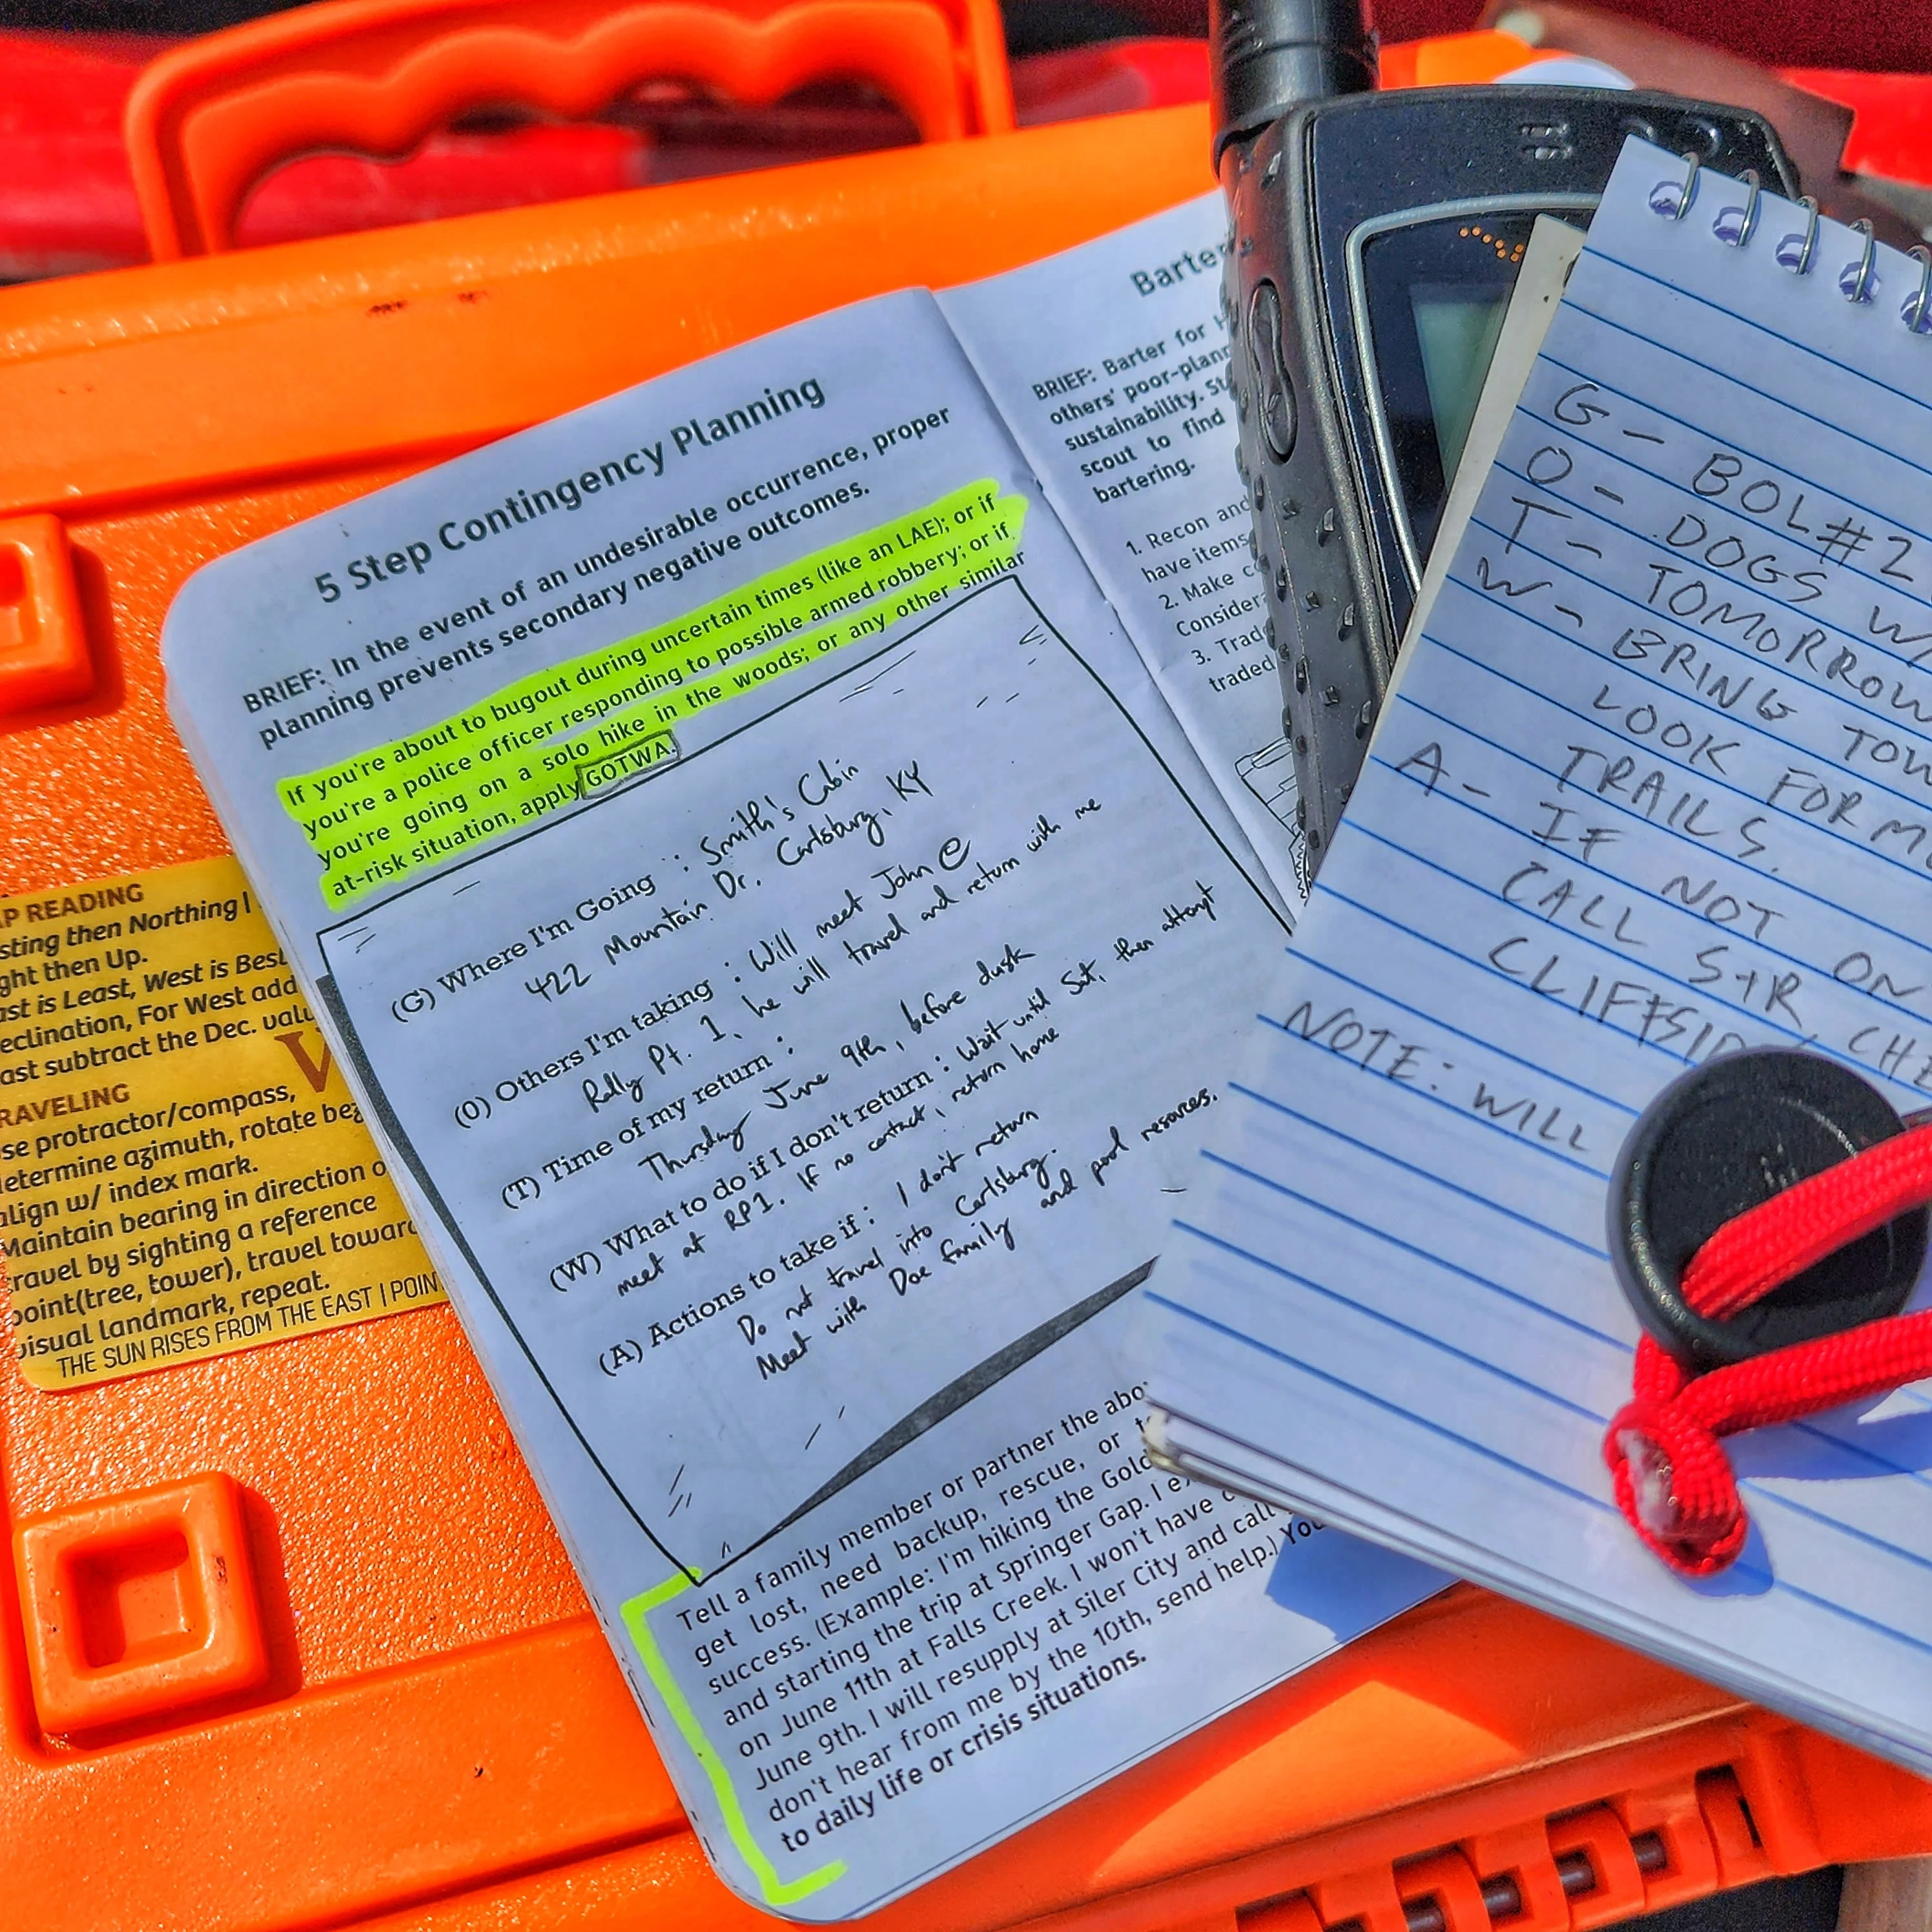 5 Step Contingency Planning
BRIEF: In the event of an undesirable occurrence, proper
planning prevents secondary negative outcomes.
If you're about to bugout during uncertain times (like an LAE); or if
you're a police officer responding to possible armed robbery; or if
you're going on a solo hike in the woods; or any other similar
at-risk situation, apply GOTWA.
(G) Where I'm Going : Smith's Cabin
422 Mountain Dr. Carlsburg, KY
(O) Others I'm taking : Will meet John @
Rally Pt. 1, he will travel and return with me
(T) Time of my return :
Thursday June 9th, before dusk
(W) What to do if I don't return : Wait until Sat, then attempt
meet at RP1. If no contact, return home
(A) Actions to take if : I don't return
Do not travel into Carlsburg.
Meet with Doe family and pool resources.
Tell a family member or partner the abo
get lost, need backup, rescue, or
success. (Example: I'm hiking the Gold
and starting the trip at Springer Gap. I
on June 11th at Falls Creek. I won't have
June 9th. I will resupply at Siler City and call
don't hear from me by the 10th, send help.) You
to daily life or crisis situations.
Barter
BRIEF: Barter for
others' poor-plann
sustainability.
scout to find
bartering.
1. Recon and
have items
2. Make
Consider
3. Trad
traded
G - BOL#2
O - DOGS W/
T - TOMORROW
W - BRING TOW
LOOK FOR M
TRAILS.
A - IF NOT ON
CALL S+R, CHE
CLIFFSID
NOTE: WILL
P READING
sting then Northing |
ght then Up.
ast is Least, West is Best
eclination, For West add
ast subtract the Dec. valu
V
RAVELING
se protractor/compass,
etermine azimuth, rotate bez
align w/ index mark.
Maintain bearing in direction o
ravel by sighting a reference
point(tree, tower), travel toward
visual landmark, repeat.
THE SUN RISES FROM THE EAST | POIN